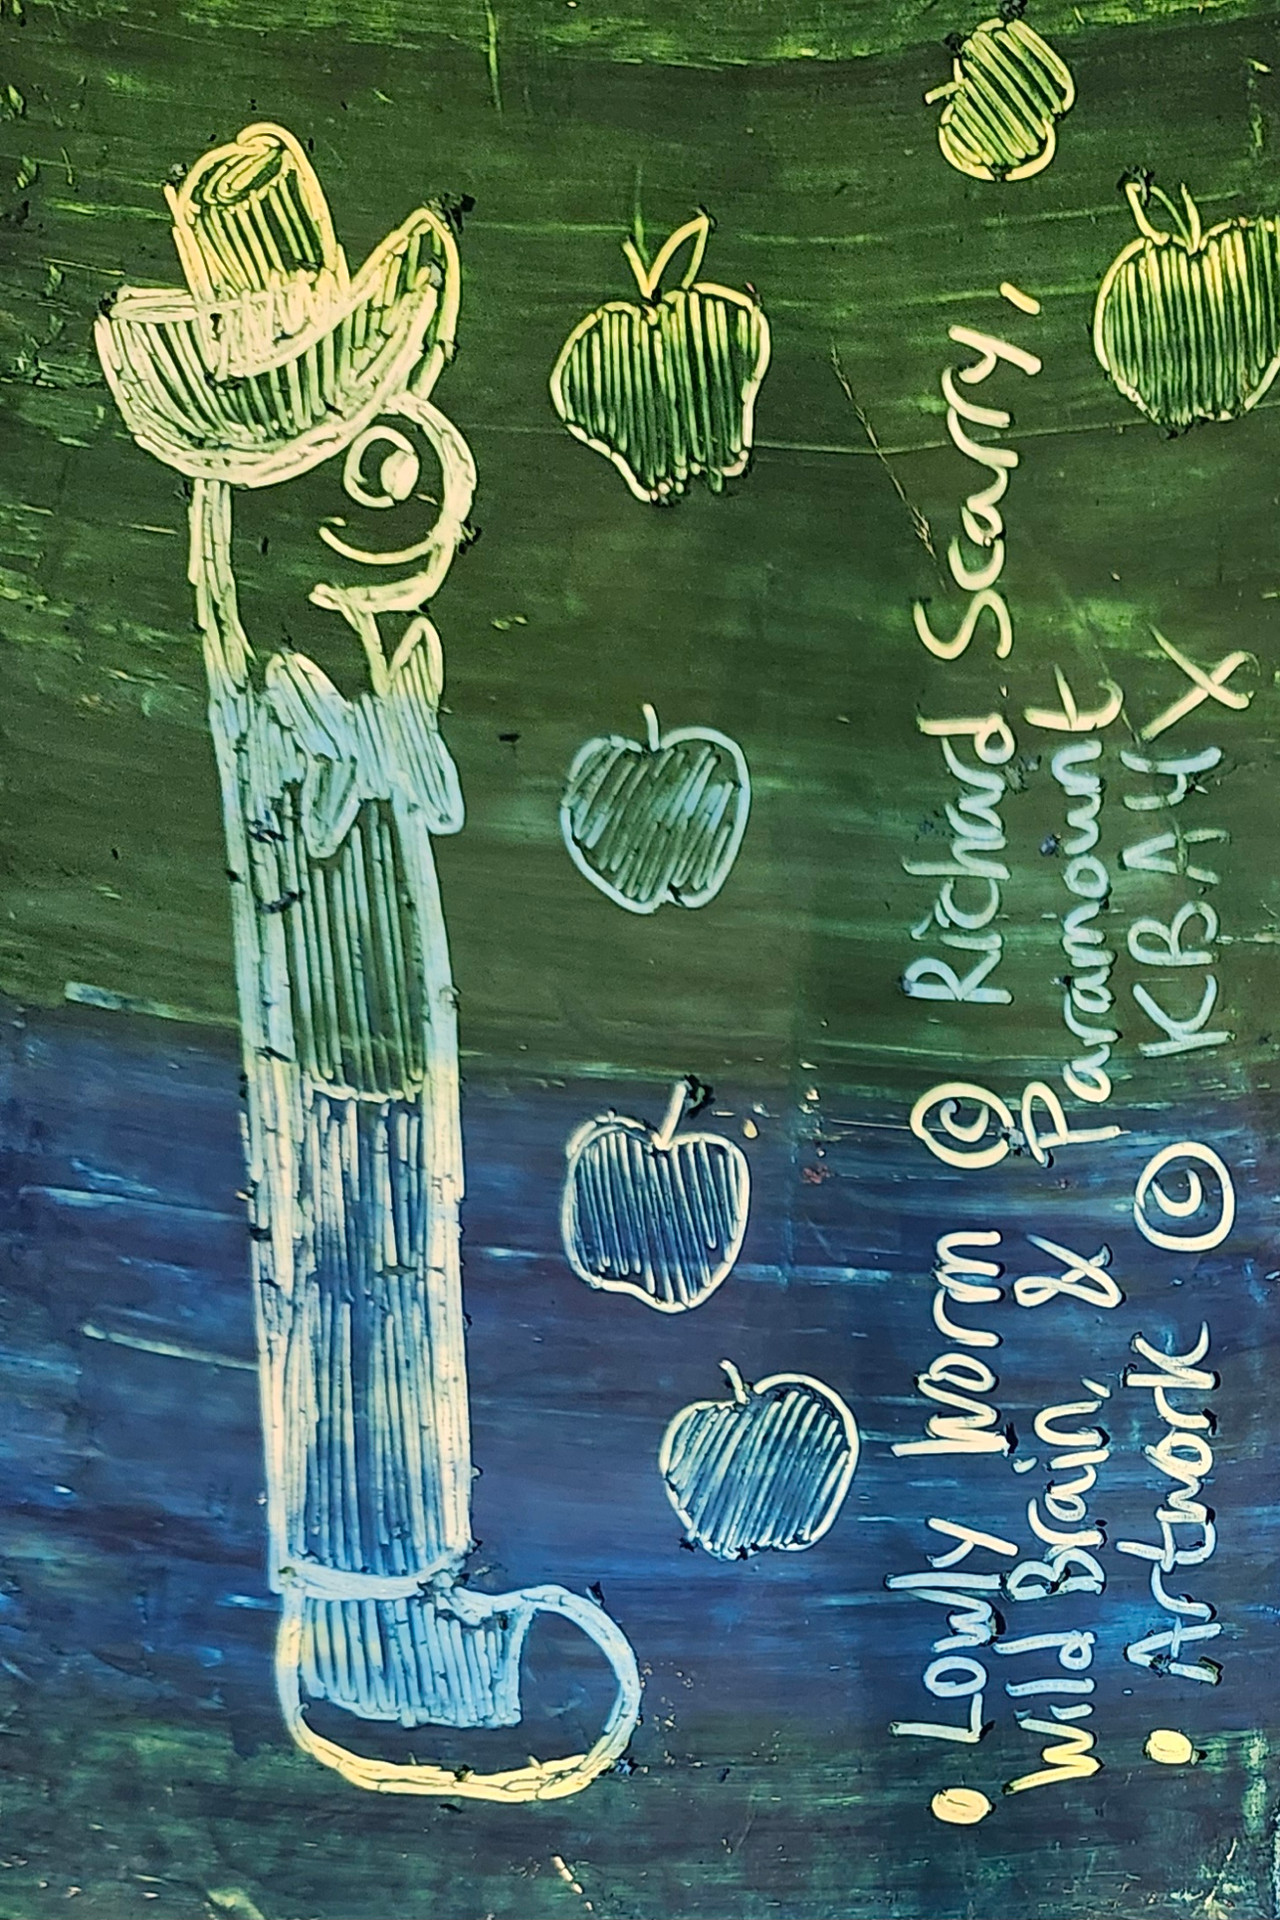 • Lowly Worm © Richard Scarry,
Wild Brain, & Paramount
• Artwork © KBAHX